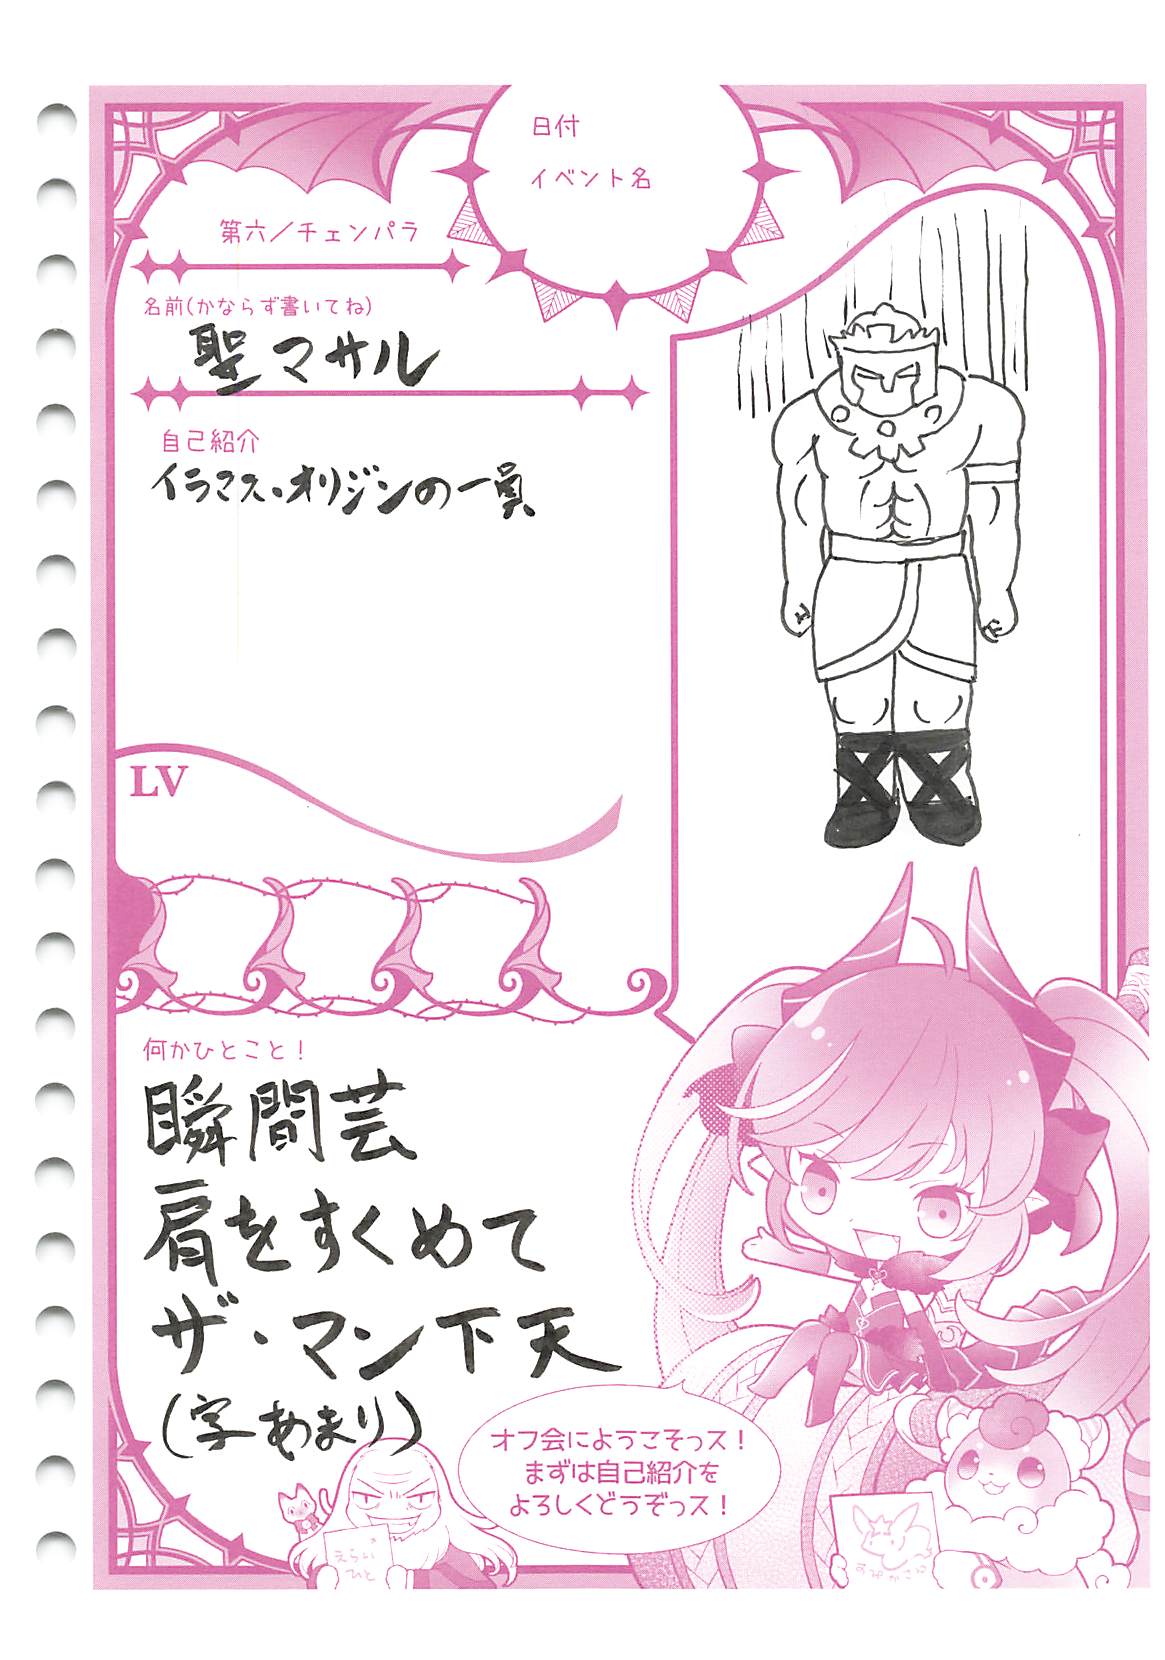 日付
イベント名
第六／チェンパラ
名前(かならず書いてね)
聖マサル
自己紹介
イラマス・オリジンの一員
LV
何かひとこと！
瞬間芸
肩をすくめて
ザ・マン下天
(字あまり)
オフ会にようこそっス！
まずは自己紹介を
よろしくどうぞっス！
えらい
ひと